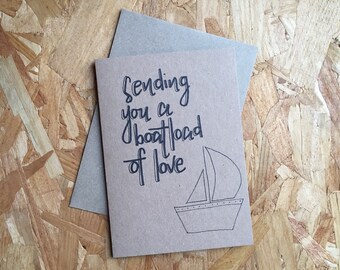 Sending
you a
boatload
of love